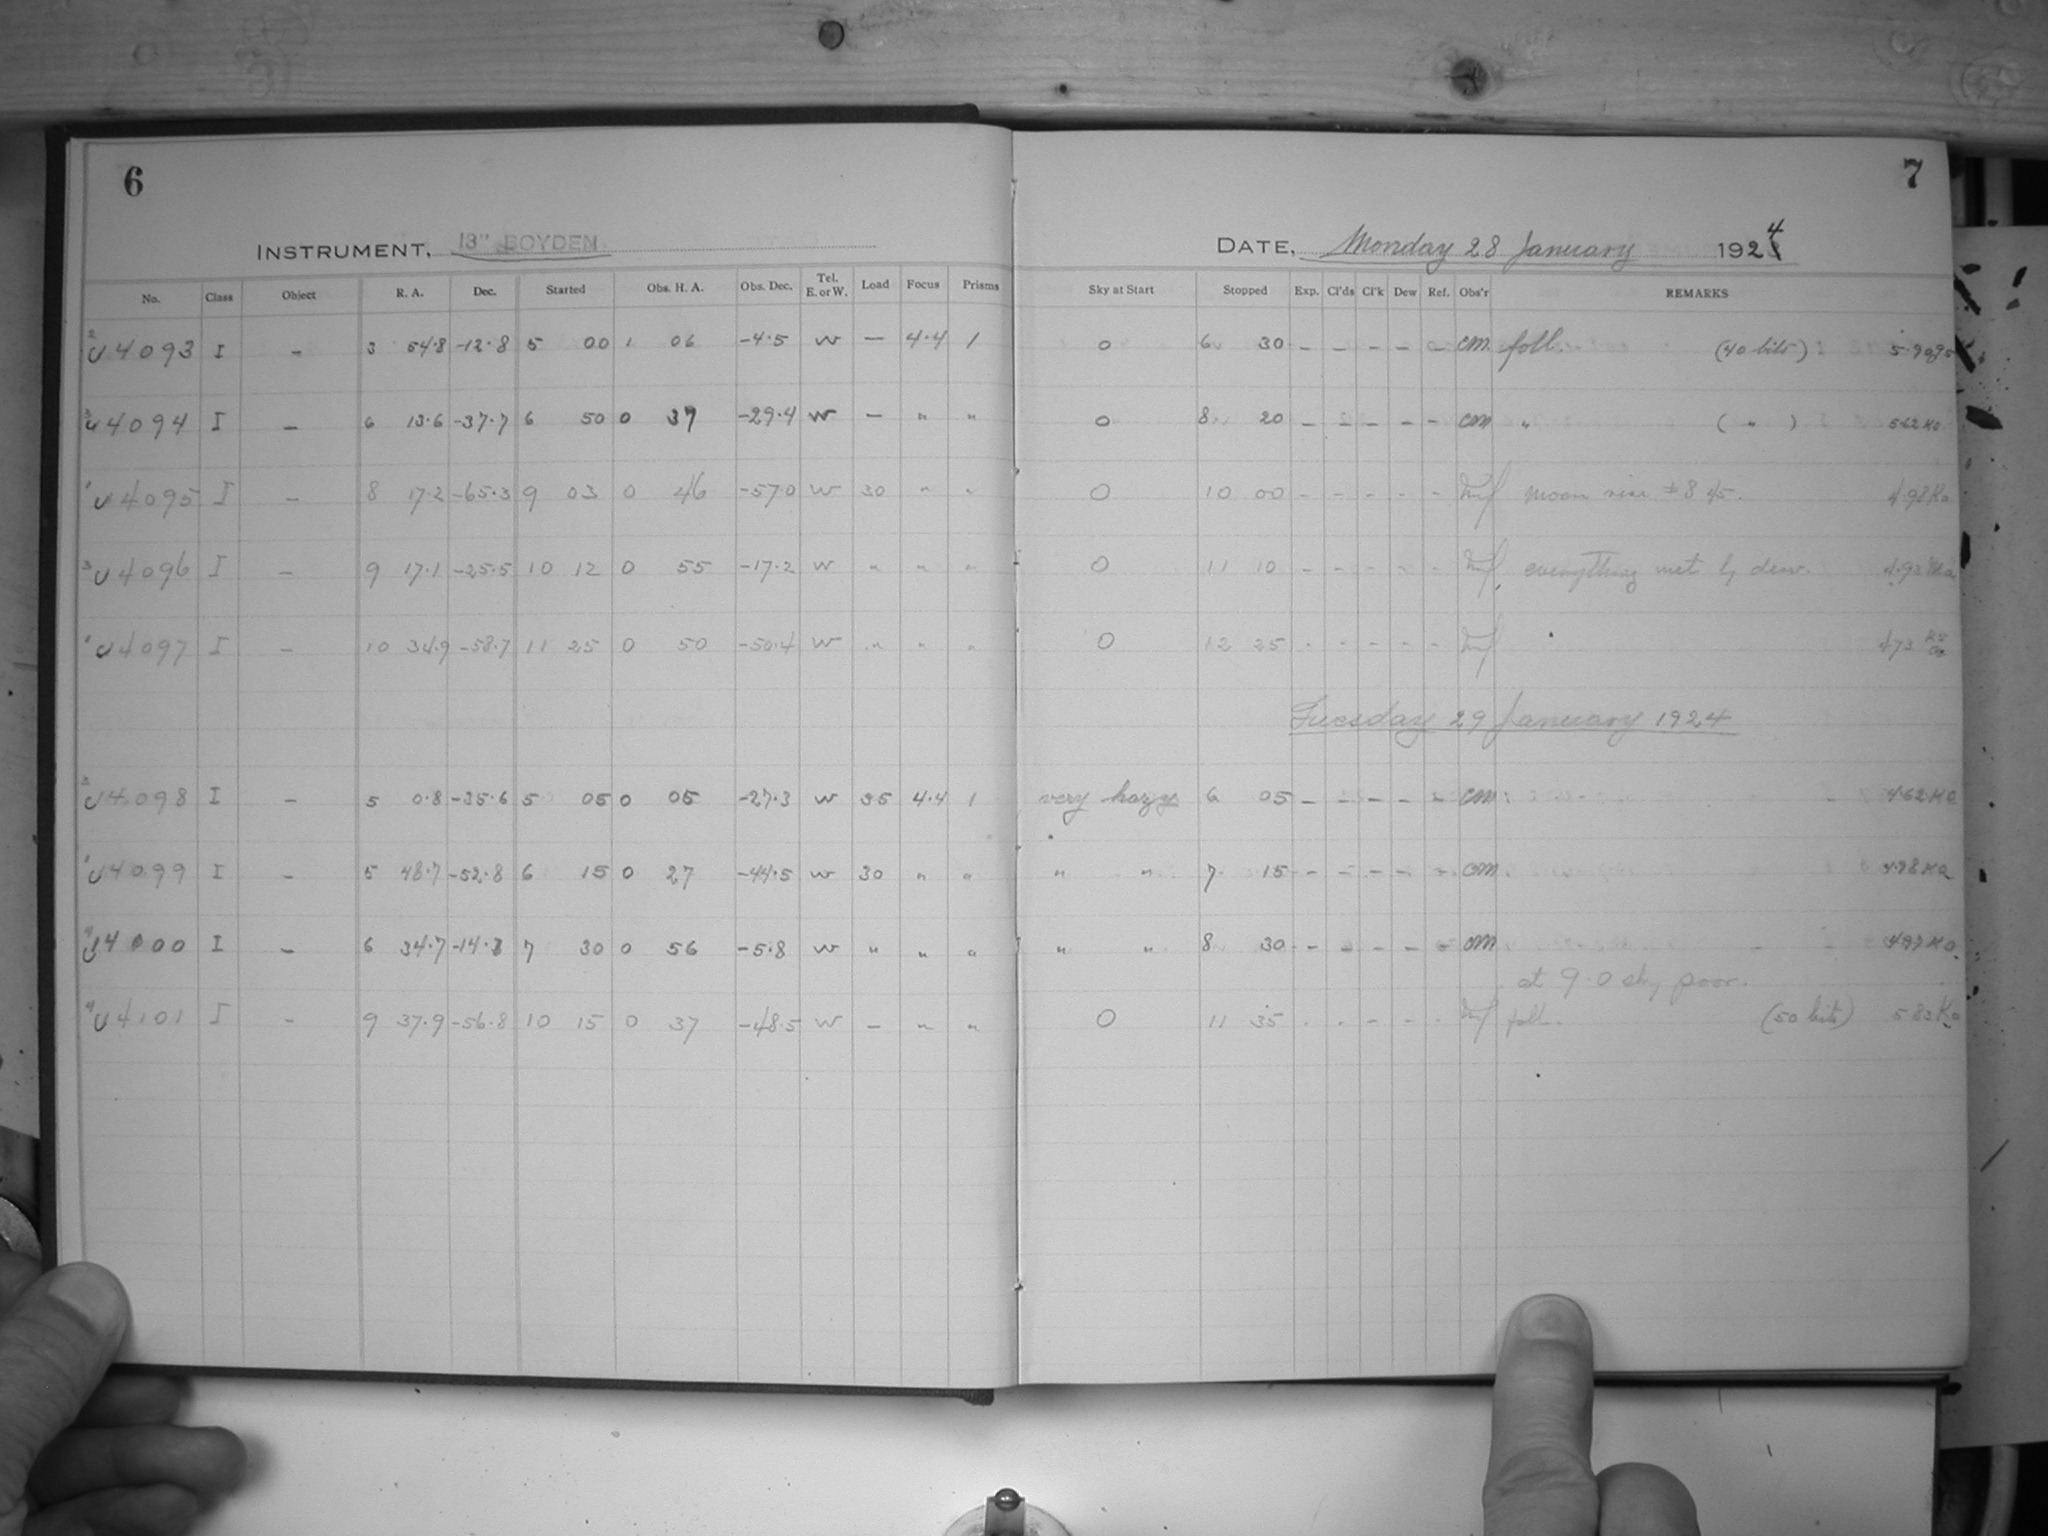 6
7
INSTRUMENT, 13" BOYDEN
DATE, Monday 28 January 1924
No. Class Object R. A. Dec. Started Obs. H. A. Obs. Dec. Tel. E. or W. Load Focus Prisms Sky at Start Stopped Exp. Cl'ds Cl'k Dew Ref. Obs'r REMARKS
2 U4093 I - 3 54.8 -12.8 5 00 1 06 -4.5 W - 4.4 1 0 6 30 - - - - - CM foll. (40 bits)
3 U4094 I - 6 13.6 -37.7 6 50 0 37 -29.4 W - " " 0 8 20 - - - - - CM " ( " ) 5.62 Ko
1 U4095 I - 8 17.2 -65.3 9 03 0 46 -57.0 W 30 " " 0 10 00 - - - - - moon rise ± 8 45. 4.98 Ko
3 U4096 I - 9 17.1 -25.5 10 12 0 55 -17.2 W " " " 0 11 10 - - - - - everything wet by dew.
1 U4097 I - 10 34.9 -58.7 11 25 0 50 -50.4 W " " " 0 12 25 - - - - - 4.73
Tuesday 29 January 1924
U4098 I - 5 0.8 -35.6 5 05 0 05 -27.3 W 35 4.4 1 very hazy 6 05 - - - - - CM 4.62 Ko
1 U4099 I - 5 48.7 -52.8 6 15 0 27 -44.5 W 30 " " " " 7 15 - - - - - CM 4.98 Ko
4 U4000 I - 6 34.7 -14.1 7 30 0 56 -5.8 W " " " " " 8 30 - - - - - CM 4.97 Ko
at 9.0 sky poor.
4 U4101 I - 9 37.9 -56.8 10 15 0 37 -48.5 W - " " 0 11 35 - - - - - foll. (50 bits) 5.83 Ko